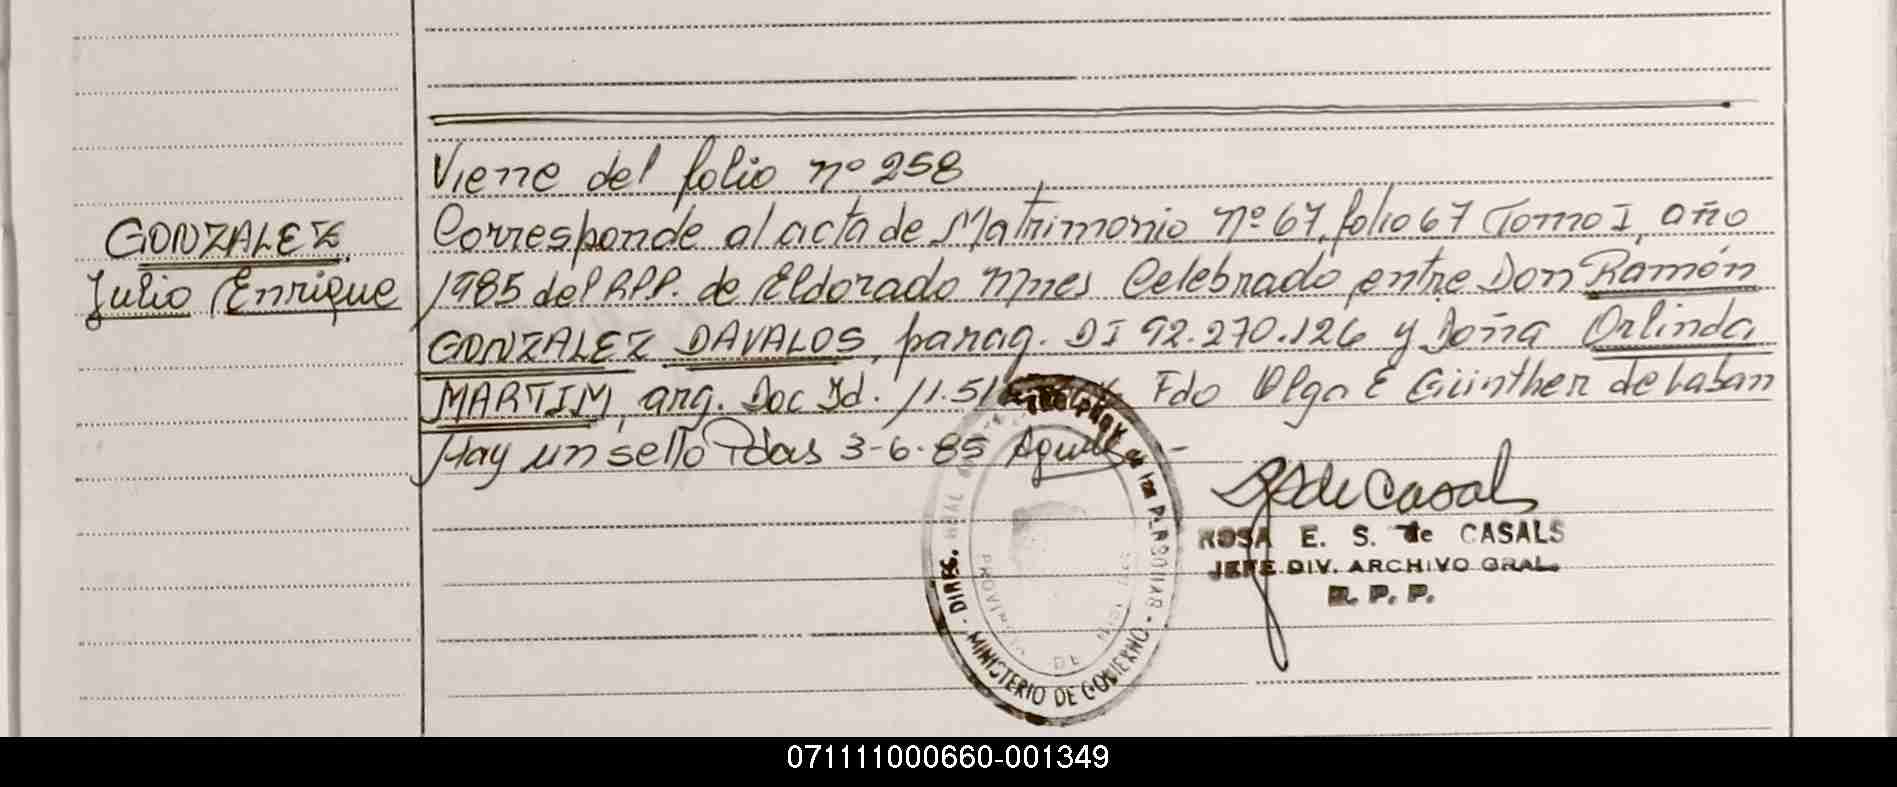 Viene del folio nº 258
GONZALEZ
Julio Enrique
Corresponde al acta de Matrimonio nº 67, folio 67 Tomo I, año
1985 del RPP. de Eldorado Mnes Celebrado entre Don Ramón
GONZALEZ DAVALOS, parag. DI 92.270.126 y Doña Orlinda
MARTIM, arg. Doc Id. 11.51 Fdo Olga E Günther de Laban
Hay un sello Pdas 3-6-85
de Casals
ROSA E. S. de CASALS
JEFE DIV. ARCHIVO GRAL.
R. P. P.
DIREC. GRAL DE LAS PERSONAS
- MINISTERIO DE GOBIERNO -
PROVINCIA DE MISIONES
071111000660-001349